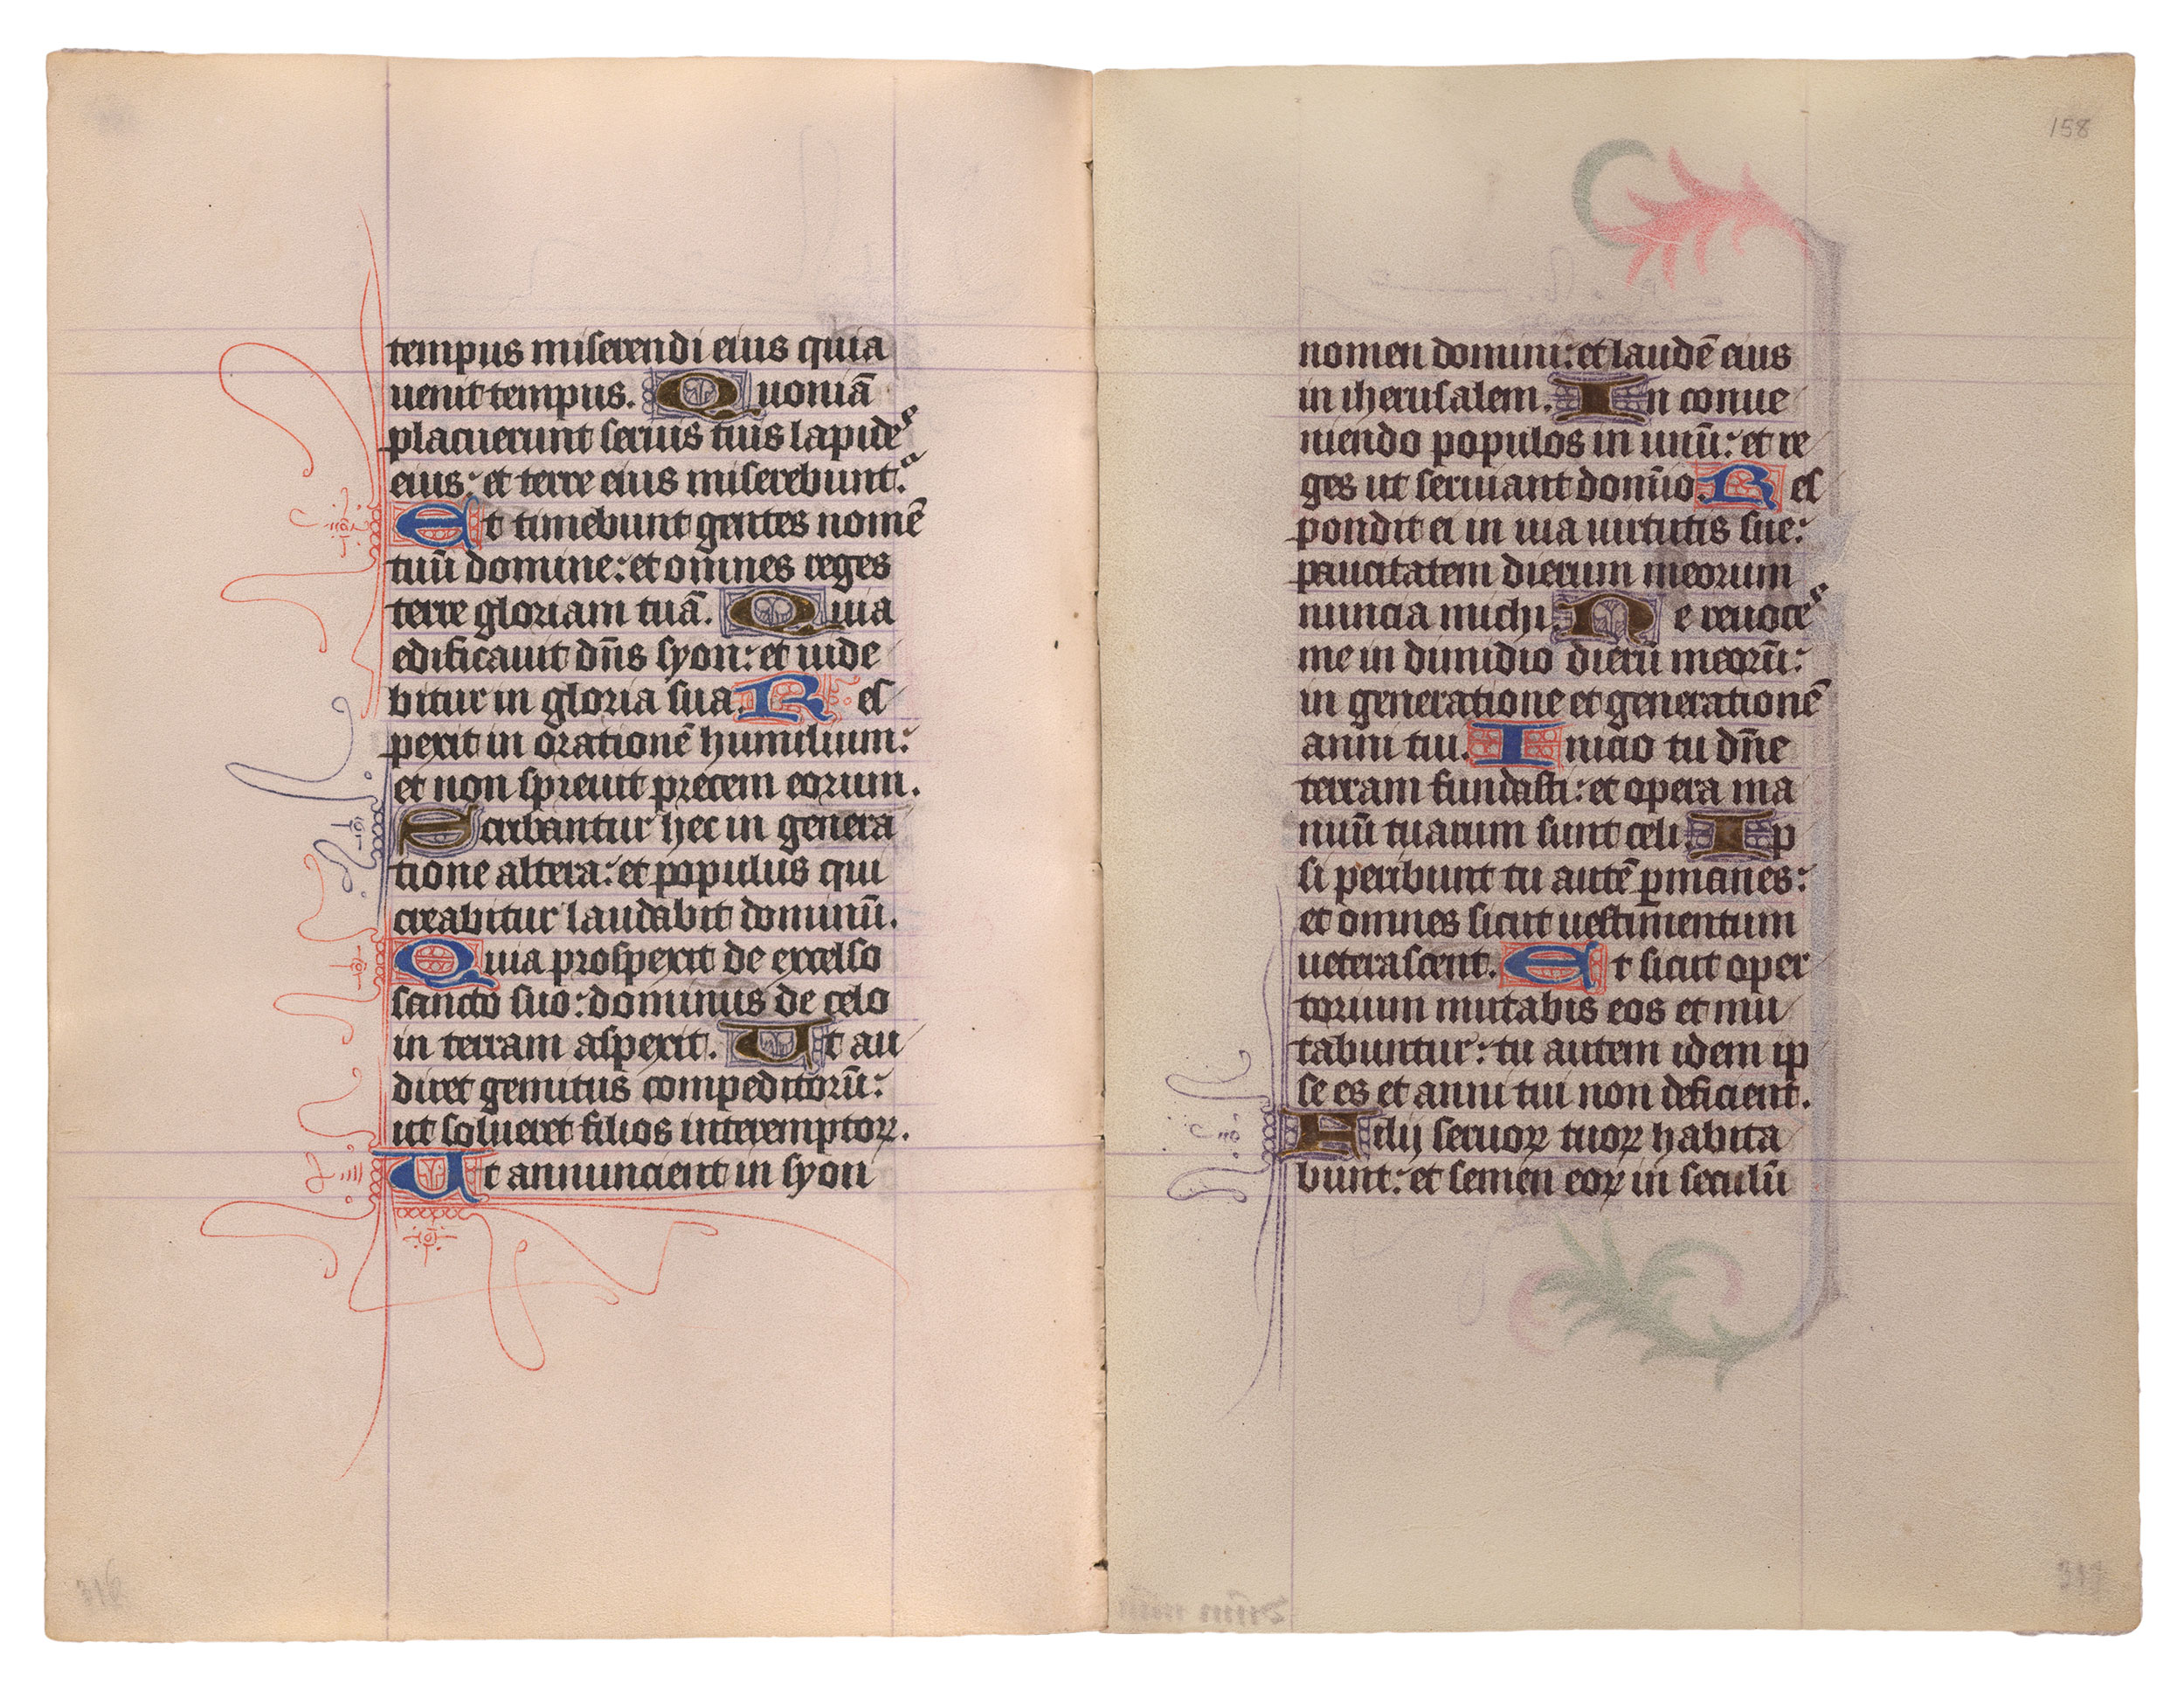 tempus miserendi eius quia
uenit tempus. Quoniā
placuerunt seruis tuis lapides
eius: et terre eius miserebunt᷑.
Et timebunt gentes nomē
tuū domine: et omnes reges
terre gloriam tuā. Quia
edificauit dn̄s syon: et uide
bitur in gloria sua. Res
pexit in orationē humilium:
et non spreuit precem eorum.
Scribantur hec in genera
tione altera: et populus qui
creabitur laudabit dominū.
Quia prospexit de excelso
sancto suo: dominus de celo
in terram aspexit. Ut au
diret gemitus compeditorū:
ut solueret filios interemptoꝝ.
Ut annuncient in syon
316
158
nomen domini: et laudē eius
in iherusalem. In conue
niendo populos in unū: et re
ges ut seruiant domīo. Res
pondit ei in uia uirtutis sue:
paucitatem dierum meorum
nuncia michi. Ne reuoces
me in dimidio dierū meorū:
in generatione et generationē
anni tui. Inicio tu dn̄e
terram fundasti: et opera ma
nuū tuarum sunt celi. Ip
si peribunt tu autē ꝑmanes:
et omnes sicut uestimentum
ueterascent. Et sicut oper
torium mutabis eos et mu
tabuntur: tu autem idem ip
se es et anni tui non deficient.
Filij seruoꝝ tuoꝝ habita
bunt: et semen eoꝝ in seculū
317